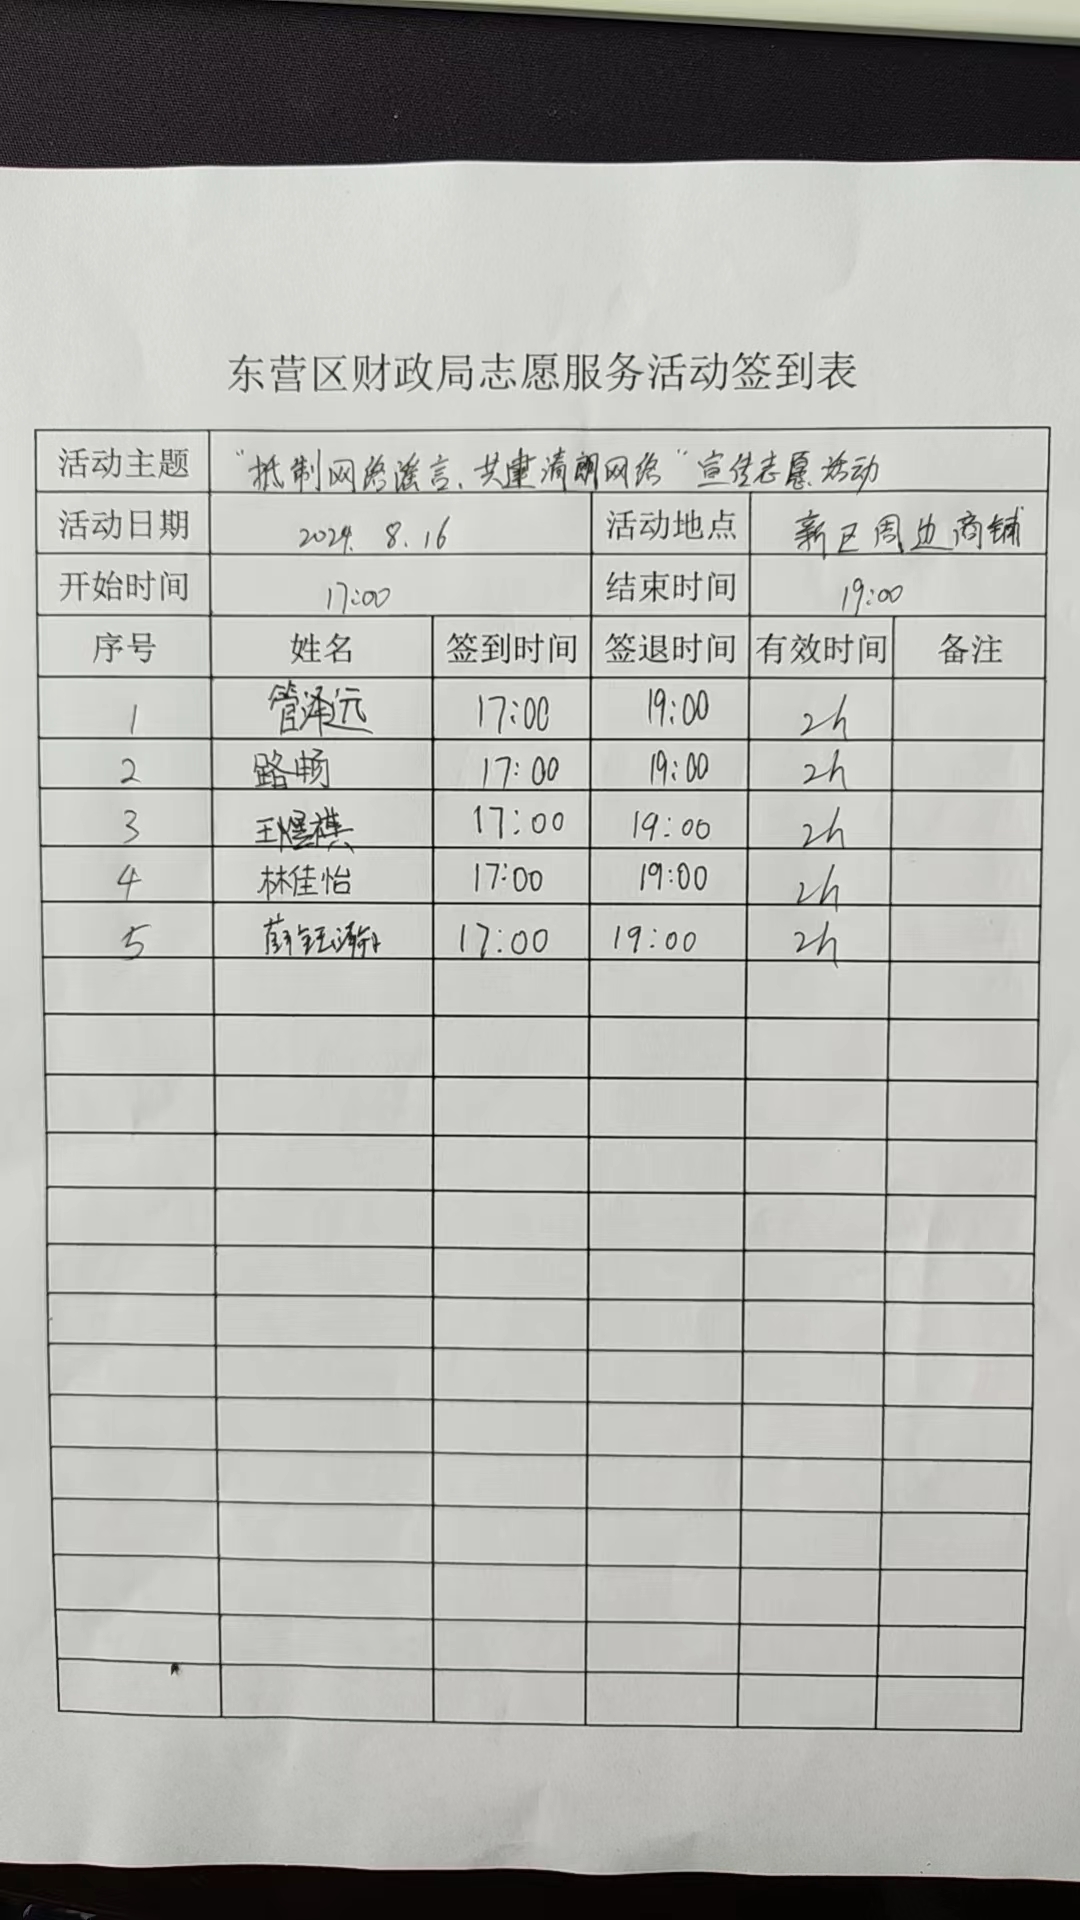 东营区财政局志愿服务活动签到表
活动主题 "抵制网络谣言、共建清朗网络"宣传志愿活动
活动日期 2024.8.16 活动地点 新区周边商铺
开始时间 17:00 结束时间 19:00
序号 姓名 签到时间 签退时间 有效时间 备注
1 管泽远 17:00 19:00 2h
2 路畅 17:00 19:00 2h
3 王煜祺 17:00 19:00 2h
4 林佳怡 17:00 19:00 2h
5 薛钰瀚 17:00 19:00 2h